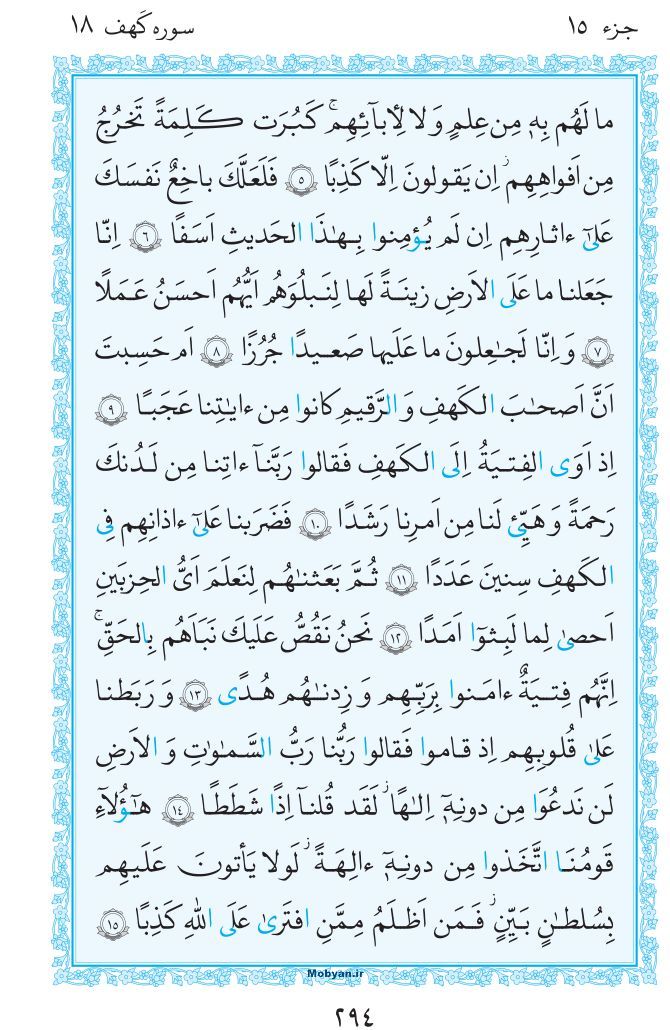 جزء ١٥
سوره کهف ١٨
ما لَهُم بِهٖ مِن عِلمٍ وَلا لِأبآئِهِم ۚ کَبُرَت کَلِمَةً تَخرُجُ
مِن اَفواهِهِم ۚ اِن یَقولونَ اِلّا کَذِبًا ﴿٥﴾ فَلَعَلَّکَ باخِعٌ نَفسَکَ
عَلیٰٓ ءاثـارِهِم اِن لَم یُؤمِنوا بِـهـٰذَا الحَدیثِ اَسَفًا ﴿٦﴾ اِنّا
جَعَلنـا ما عَلَی الاَرضِ زینَـةً لَها لِنَـبلُوَهُم اَیُّهُم اَحسَنُ عَـمَلًا
﴿٧﴾ وَ اِنّا لَجـٰعِلونَ ما عَلَیها صَعـیدًا جُرُزًا ﴿٨﴾ اَم حَسِبتَ
اَنَّ اَصحـٰبَ الکَهفِ وَ الرَّقیمِ کانوا مِن ءایـٰتِنا عَجَبًـا ﴿٩﴾
اِذ اَوَی الفِتـیَةُ اِلَی الکَهفِ فَقالوا رَبَّنآ ءاتِنا مِن لَـدُنکَ
رَحمَةً وَ هَیِّئ لَنا مِن اَمرِنا رَشَدًا ﴿١٠﴾ فَضَرَبنا عَلیٰٓ ءاذانِهِم فِی
الکَهفِ سِنینَ عَدَدًا ﴿١١﴾ ثُمَّ بَعَثنـٰهُم لِنَعلَمَ اَیُّ الحِزبَینِ
اَحصیٰ لِما لَبِثوٓا اَمَدًا ﴿١٢﴾ نَحنُ نَقُصُّ عَلَیکَ نَبَاَهُم بِالحَقِّ ۚ
اِنَّهُم فِتیَةٌ ءامَـنوا بِرَبِّـهِم وَ زِدنـٰهُم هُـدًی ﴿١٣﴾ وَ رَبَطنـا
عَلیٰ قُلوبِهِم اِذ قـاموا فَقالوا رَبُّنا رَبُّ السَّمـٰوٰتِ وَ الاَرضِ
لَن نَدعُوَا مِن دونِهٖٓ اِلـٰهًا ۖ لَقَد قُلنآ اِذًا شَطَطًـا ﴿١٤﴾ هـٰٓؤُلآءِ
قَومُنَـا اتَّخَذوا مِن دونِـهٖٓ ءالِهَـةً ۖ لَولا یَأتونَ عَلَـیهِم
بِسُلطـٰنٍ بَـیِّنٍ ۖ فَـمَن اَظـلَمُ مِمَّنِ افتَریٰ عَلَی اللّٰهِ کَذِبًا ﴿١٥﴾
Mobyan.ir
٢٩٤